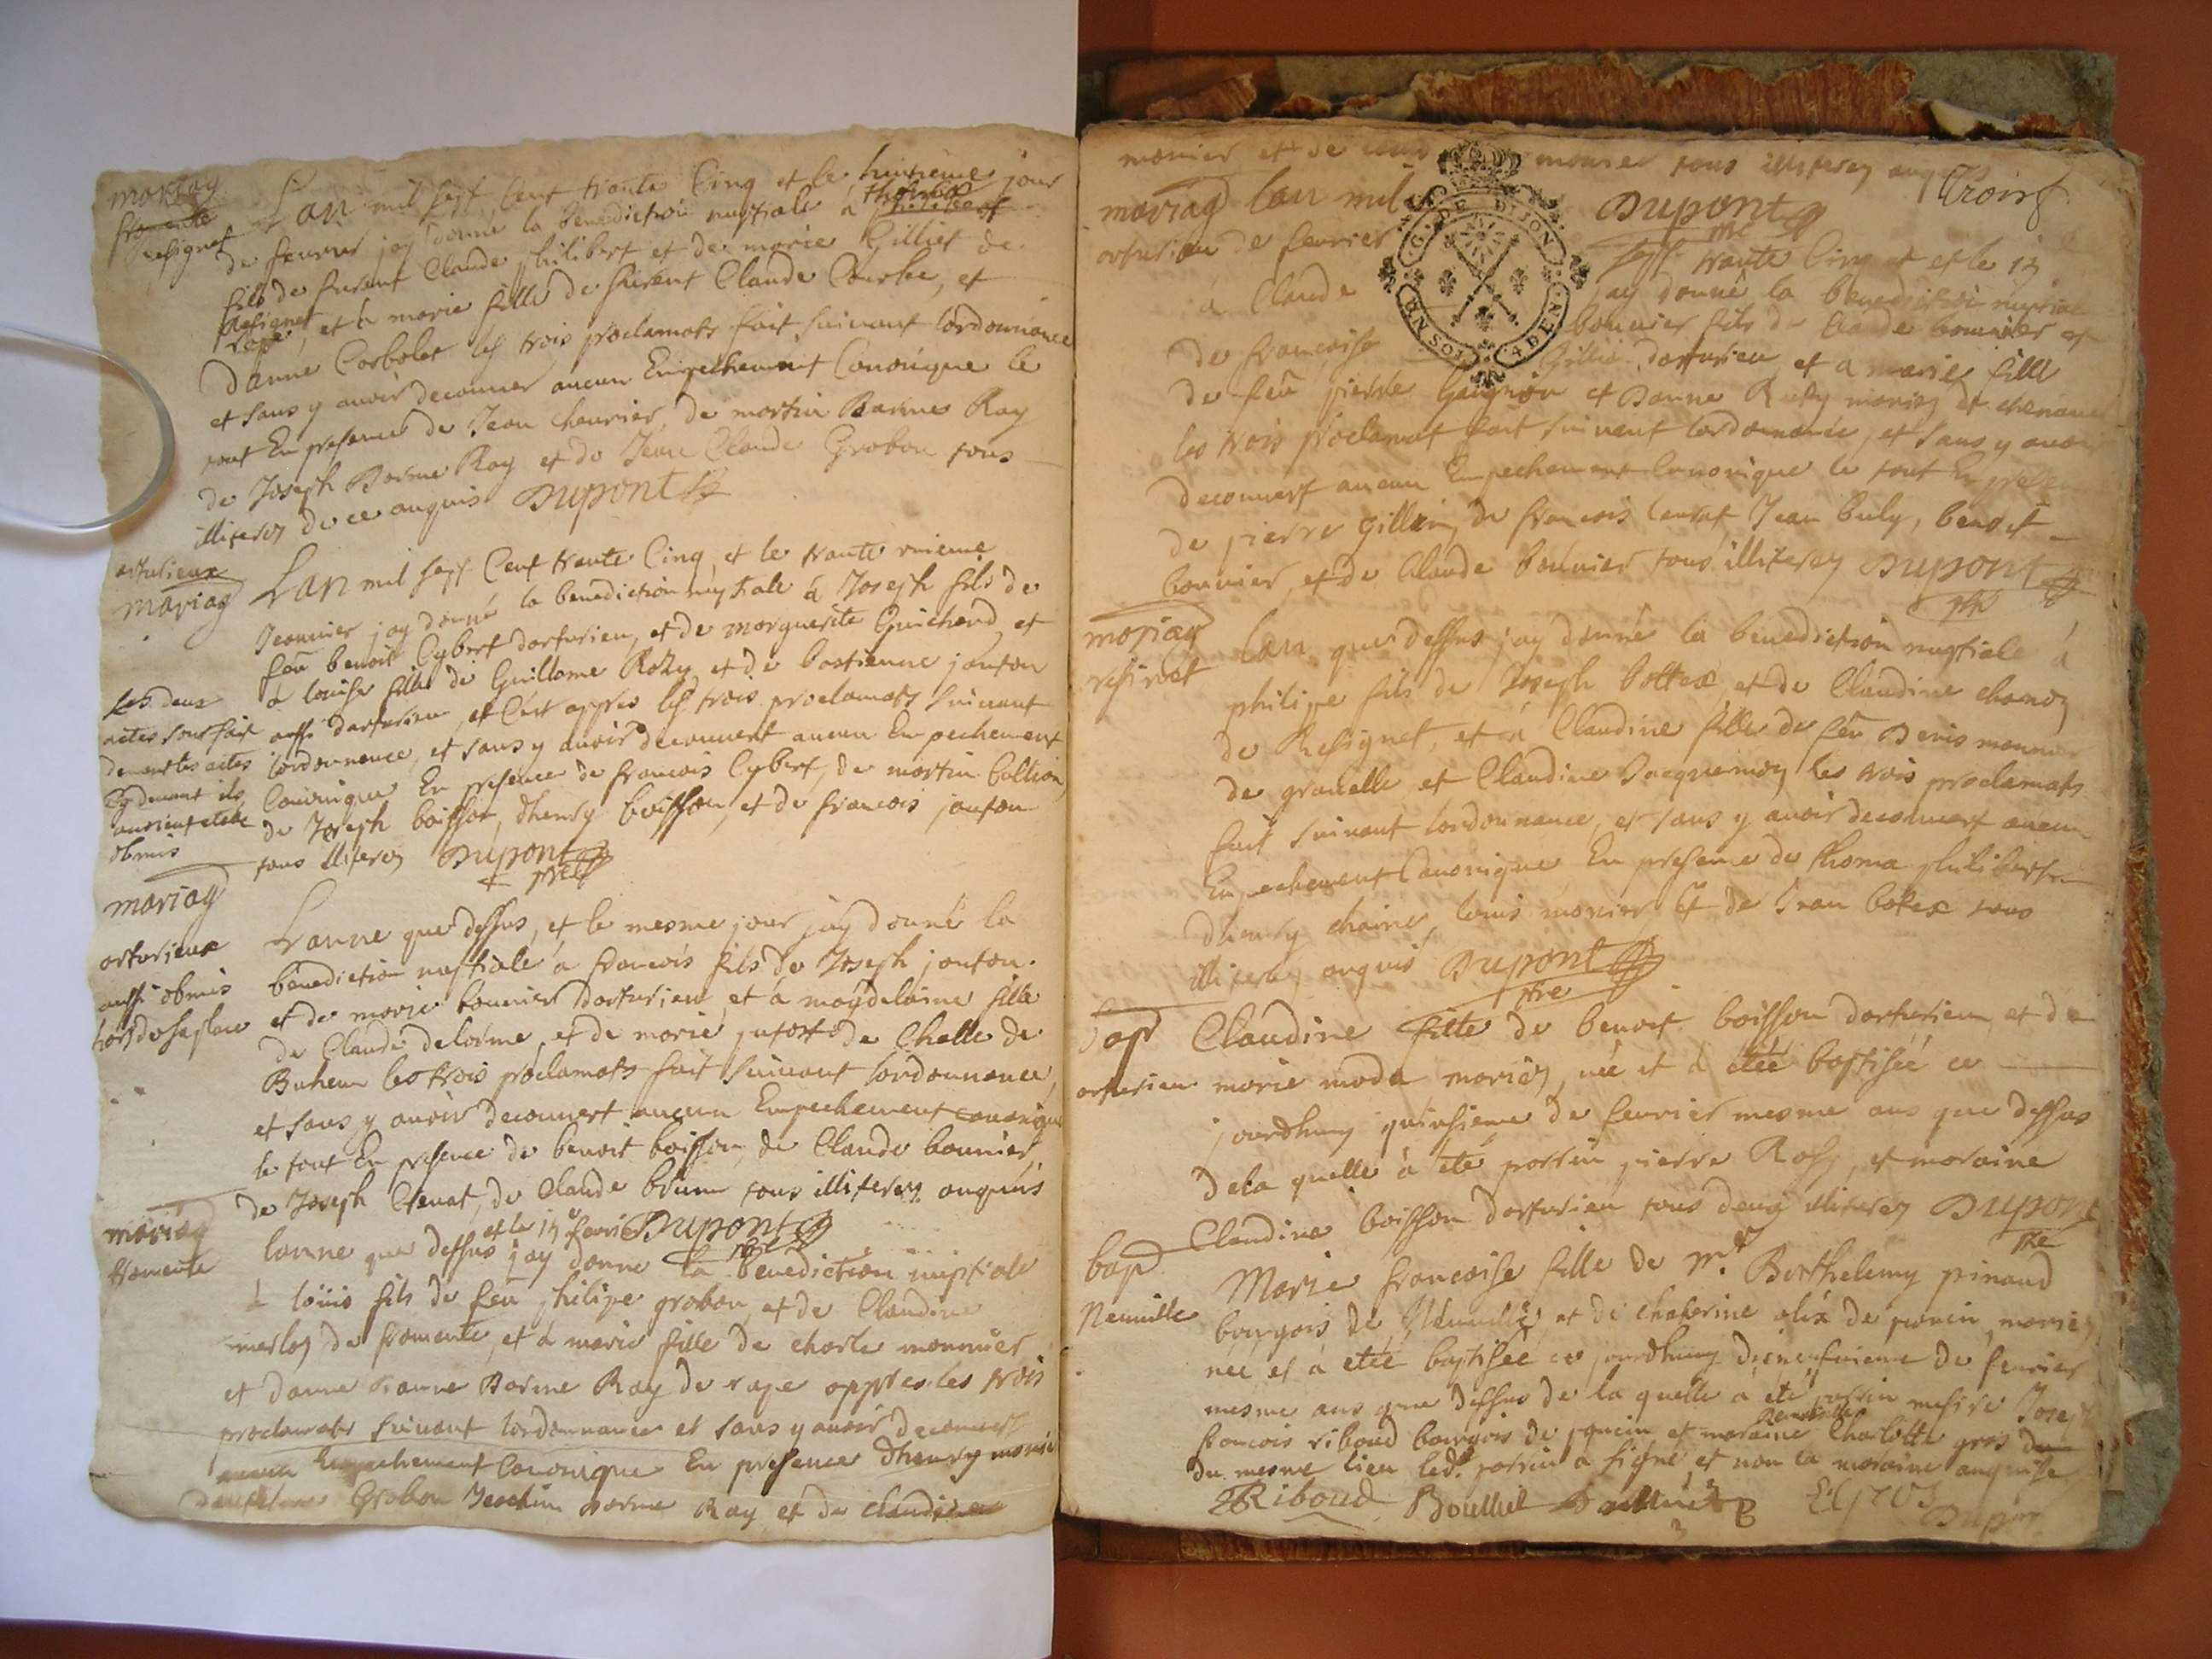 mariag
fromente
resignet
Lan mil sept Cent trante Cinq et le huitieme jour
de feuvrier jay donne la benediction nuptiale a thomas philibert
fils de furent Claude philibert et de marie Gilliet de
Resignet
rape, et a marie fille de furent Claude Courbe, et
Danne Corbolet les trois proclamats fait suivant lordonnance
et sans y avoir decouver aucun Empechement Canonique le
tout En presence de Jean chanrier, de martin Barme Ray
de Joseph Barme Ray et de Jean Claude Grobon tous
illiterez de ce anquis Dupont
arturieux
mariag
Lan mil sept Cent trante Cinq, et le trante unieme
Jeanvier jay donné la benediction nuptiale à Joseph fils de
feu benoit Cybert darturieu, et de marguerite Guichard et
a louise fille de Guillame Rozy et de bastienne janton
aussi darturieu, et C'est appres les trois proclamats suivant
lordonnance, et sans y avoir decouvert aucun Empechement
Canonique En presence de francois Cybert, de martin
de Joseph boisson, dhenry boisson, et de francois janton
tous illiterez Dupont
ptre
Les deux
actes sont fait
devant les actes
cy devant ils
avoient etété
obmis
mariag
arturieux
aussi obmis
hors de sa place
Lanne que dessus, et le mesme jour jay donné la
benediction nuptiale à francois fils de Joseph janton
et de marie bounier darturieu, et à magdelaine fille
de Claude delorme, et de marie de Chelle de
les trois proclamats fait suivant lordonnance,
et sans y avoir decouvert aucun Empechement canonique
le tout En presence de benoit boisson, de Claude bounier,
de Joseph Clenat, de Claude brun tous illiterez anquis
Dupont
ptre
mariag
fromente
lanne que dessus et le 13 jay donne la benediction nuptiale
à loüis fils de feu philipe grobon, et de Claudine
merloz de fromente, et à marie fille de charle monnier
et danne Barme Ray de rape appres les trois
proclamats suivant lordonnance et sans y avoir decouvert
aucun Empechement Canonique En presence dhenry monier
Grobon Joachin barme Ray et de Claudine
monier et de monier tous illiterez anquis
Trois
Dupont
ptre
mariag
arturieu
lan mil sept trante Cinq et le 13
de fevrier jay donné la benediction nuptiale
à Claude bounier fils de Claude bounier et
de francoise Gillié darturieu, et a marie fille
de feu pierre et Danne mariez de chenavel
les trois proclamat fait suivant lordonnance, et sans y avoir
decouvert aucun Empechement Canonique le tout En presence
de pierre Gillein, de francois Jean buly, benoit
bounier, et de Claude bounier tous illiterez Dupont
ptre
mariag
resinet
Lan que dessus jay donné la benediction nuptiale à
philipe fils de Joseph bottex, et de Claudine chanoz
de Resignet, et à Claudine fille de feu Denis monnier
de gravelle et Claudine Jacquemoz les trois proclamats
fait suivant lordonnance, et sans y avoir decouvert aucun
Empechement Canonique En presence de thoma philibert
dhenry chaine, louis monier, et de Jean botex tous
illiterez anquis Dupont
ptre
bap
arturieu
Claudine fille de benoit boisson darturieu et de
marie moda mariez, née et à étéé baptisée ce
jourdhuy quinsieme de feuvrier mesme ans que dessus
dela quelle à été parrin pierre Rosy, et maraine
Claudine boisson darturieu tous deux illiterez Dupont
ptre
bap
Neuville
Marie francoise fille de Mr. Berthelemy pinaud
bourgois de Neuville, et de chaterine alix de poncin, mariez
née et à etéé baptisée ce jourdhuy disneufvieme de fevrier
mesme ans que dessus de la quelle à été parrin mesire Joseph
francois riboud bourgois de poncin et maraine Demoiselle Charlotte gras
du mesme lieu led. parrin a signé et non la maraine anquise
Riboud Dupont
G. DE DIJON
4 DEN.